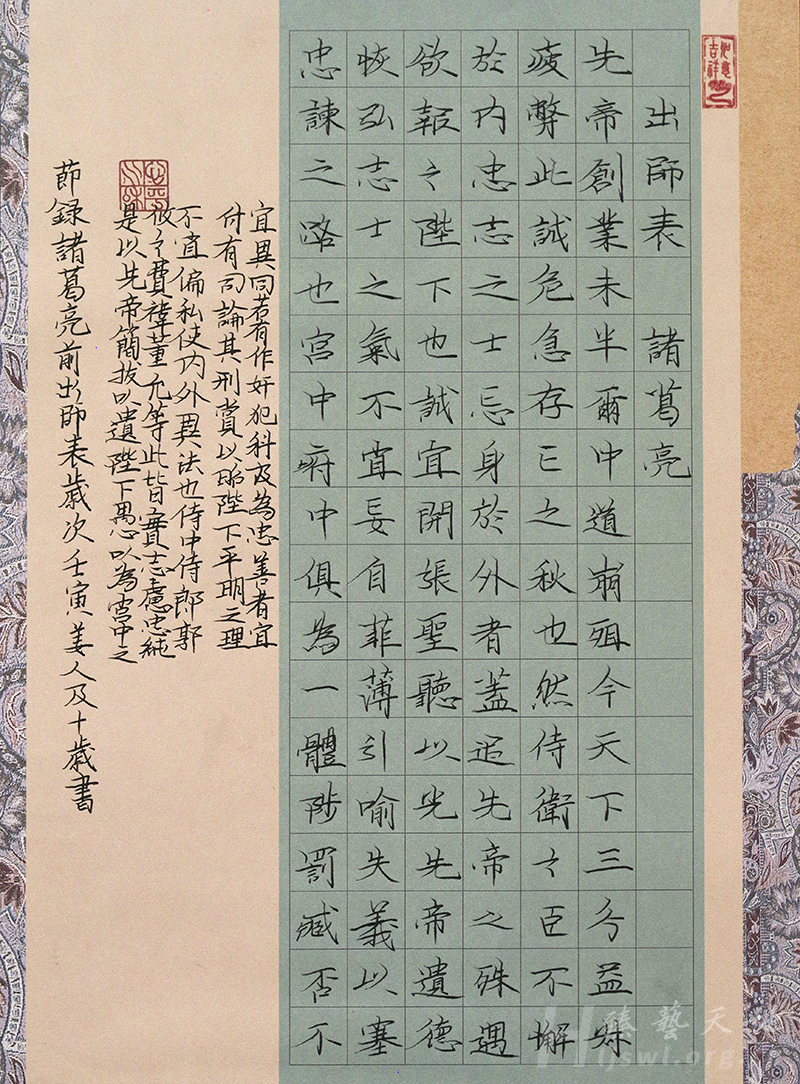 如意吉祥
出師表 諸葛亮
先帝創業未半爾中道崩殂今天下三分益州
疲弊此誠危急存亡之秋也然侍衛之臣不懈
於內忠志之士忘身於外者蓋追先帝之殊遇
欲報之陛下也誠宜開張聖聽以光先帝遺德
恢弘志士之氣不宜妄自菲薄引喻失義以塞
忠諫之路也宮中府中俱為一體陟罰臧否不
宜異同若有作奸犯科及為忠善者宜
付有司論其刑賞以昭陛下平明之理
不宜偏私使內外異法也侍中侍郎郭
攸之費禕董允等此皆實志慮忠純
是以先帝簡拔以遺陛下愚以為宮中之
節錄諸葛亮前出師表歲次壬寅姜人及十歲書